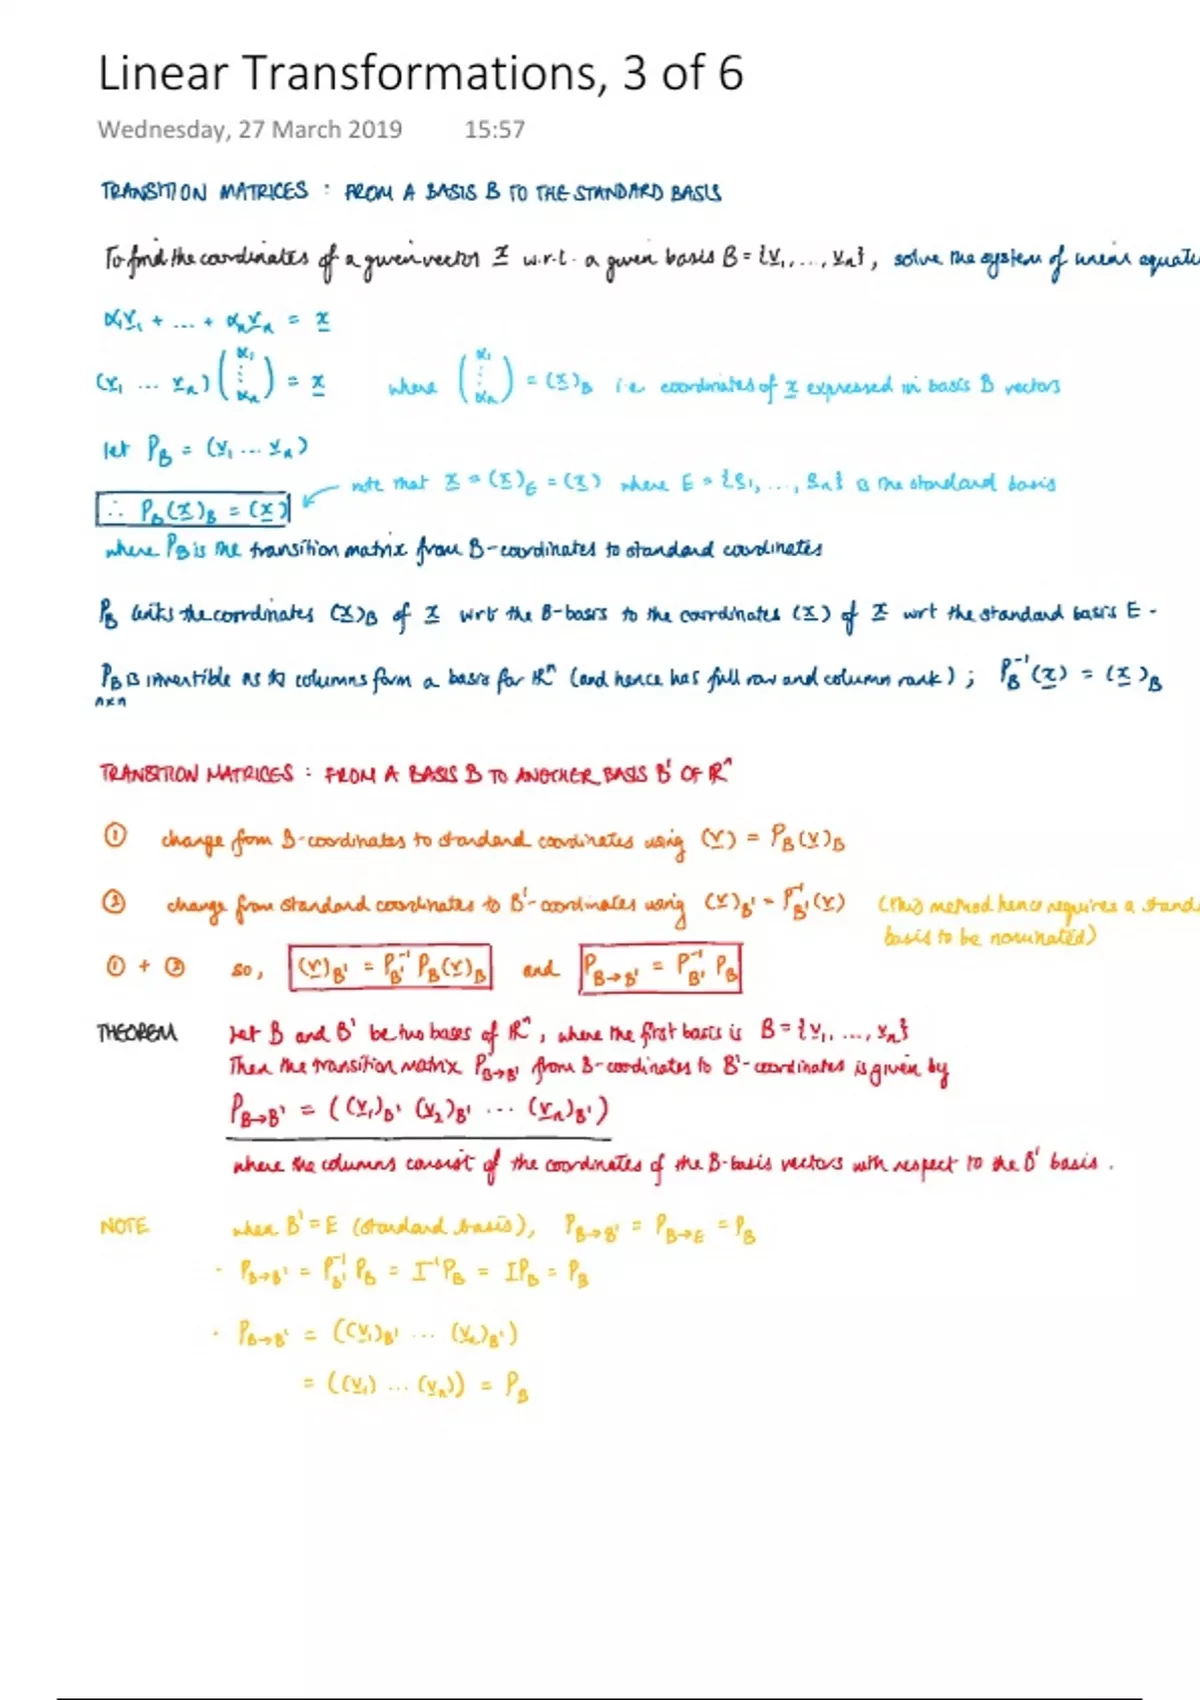 Linear Transformations, 3 of 6
Wednesday, 27 March 2019 15:57
TRANSITION MATRICES : FROM A BASIS B TO THE STANDARD BASIS
To find the coordinates of a given vector x w.r.t. a given basis B = {v₁, ..., vₙ}, solve the system of linear equati
α₁v₁ + ... + αₙvₙ = x
(v₁ ... vₙ) (α₁ ⋮ αₙ) = x where (α₁ ⋮ αₙ) = (x)_B i.e. coordinates of x expressed in basis B vectors
let P_B = (v₁ ... vₙ)
note that x = (x)_E = (x) where E = {e₁, ..., eₙ} is the standard basis
∴ P_B(x)_B = (x)
where P_B is the transition matrix from B-coordinates to standard coordinates
P_B links the coordinates (x)_B of x wrt the B-basis to the coordinates (x) of x wrt the standard basis E.
P_B is invertible as its columns form a basis for ℝⁿ (and hence has full row and column rank) ; P_B⁻¹(x) = (x)_B
n×n
TRANSITION MATRICES : FROM A BASIS B TO ANOTHER BASIS B' OF ℝⁿ
① change from B-coordinates to standard coordinates using (v) = P_B(v)_B
② change from standard coordinates to B'-coordinates using (v)_B' = P_B'⁻¹(v) (this method hence requires a stand
basis to be nominated)
① + ② so, (v)_B' = P_B'⁻¹ P_B(v)_B and P_B→B' = P_B'⁻¹ P_B
THEOREM Let B and B' be two bases of ℝⁿ, where the first basis is B = {v₁, ..., vₙ}
Then the transition matrix P_B→B' from B-coordinates to B'-coordinates is given by
P_B→B' = ((v₁)_B' (v₂)_B' ... (vₙ)_B')
where the columns consist of the coordinates of the B-basis vectors with respect to the B' basis.
NOTE when B' = E (standard basis), P_B→B' = P_B→E = P_B
· P_B→B' = P_B'⁻¹ P_B = I⁻¹P_B = IP_B = P_B
· P_B→B' = ((v₁)_B' ... (vₙ)_B')
= ((v₁) ... (vₙ)) = P_B